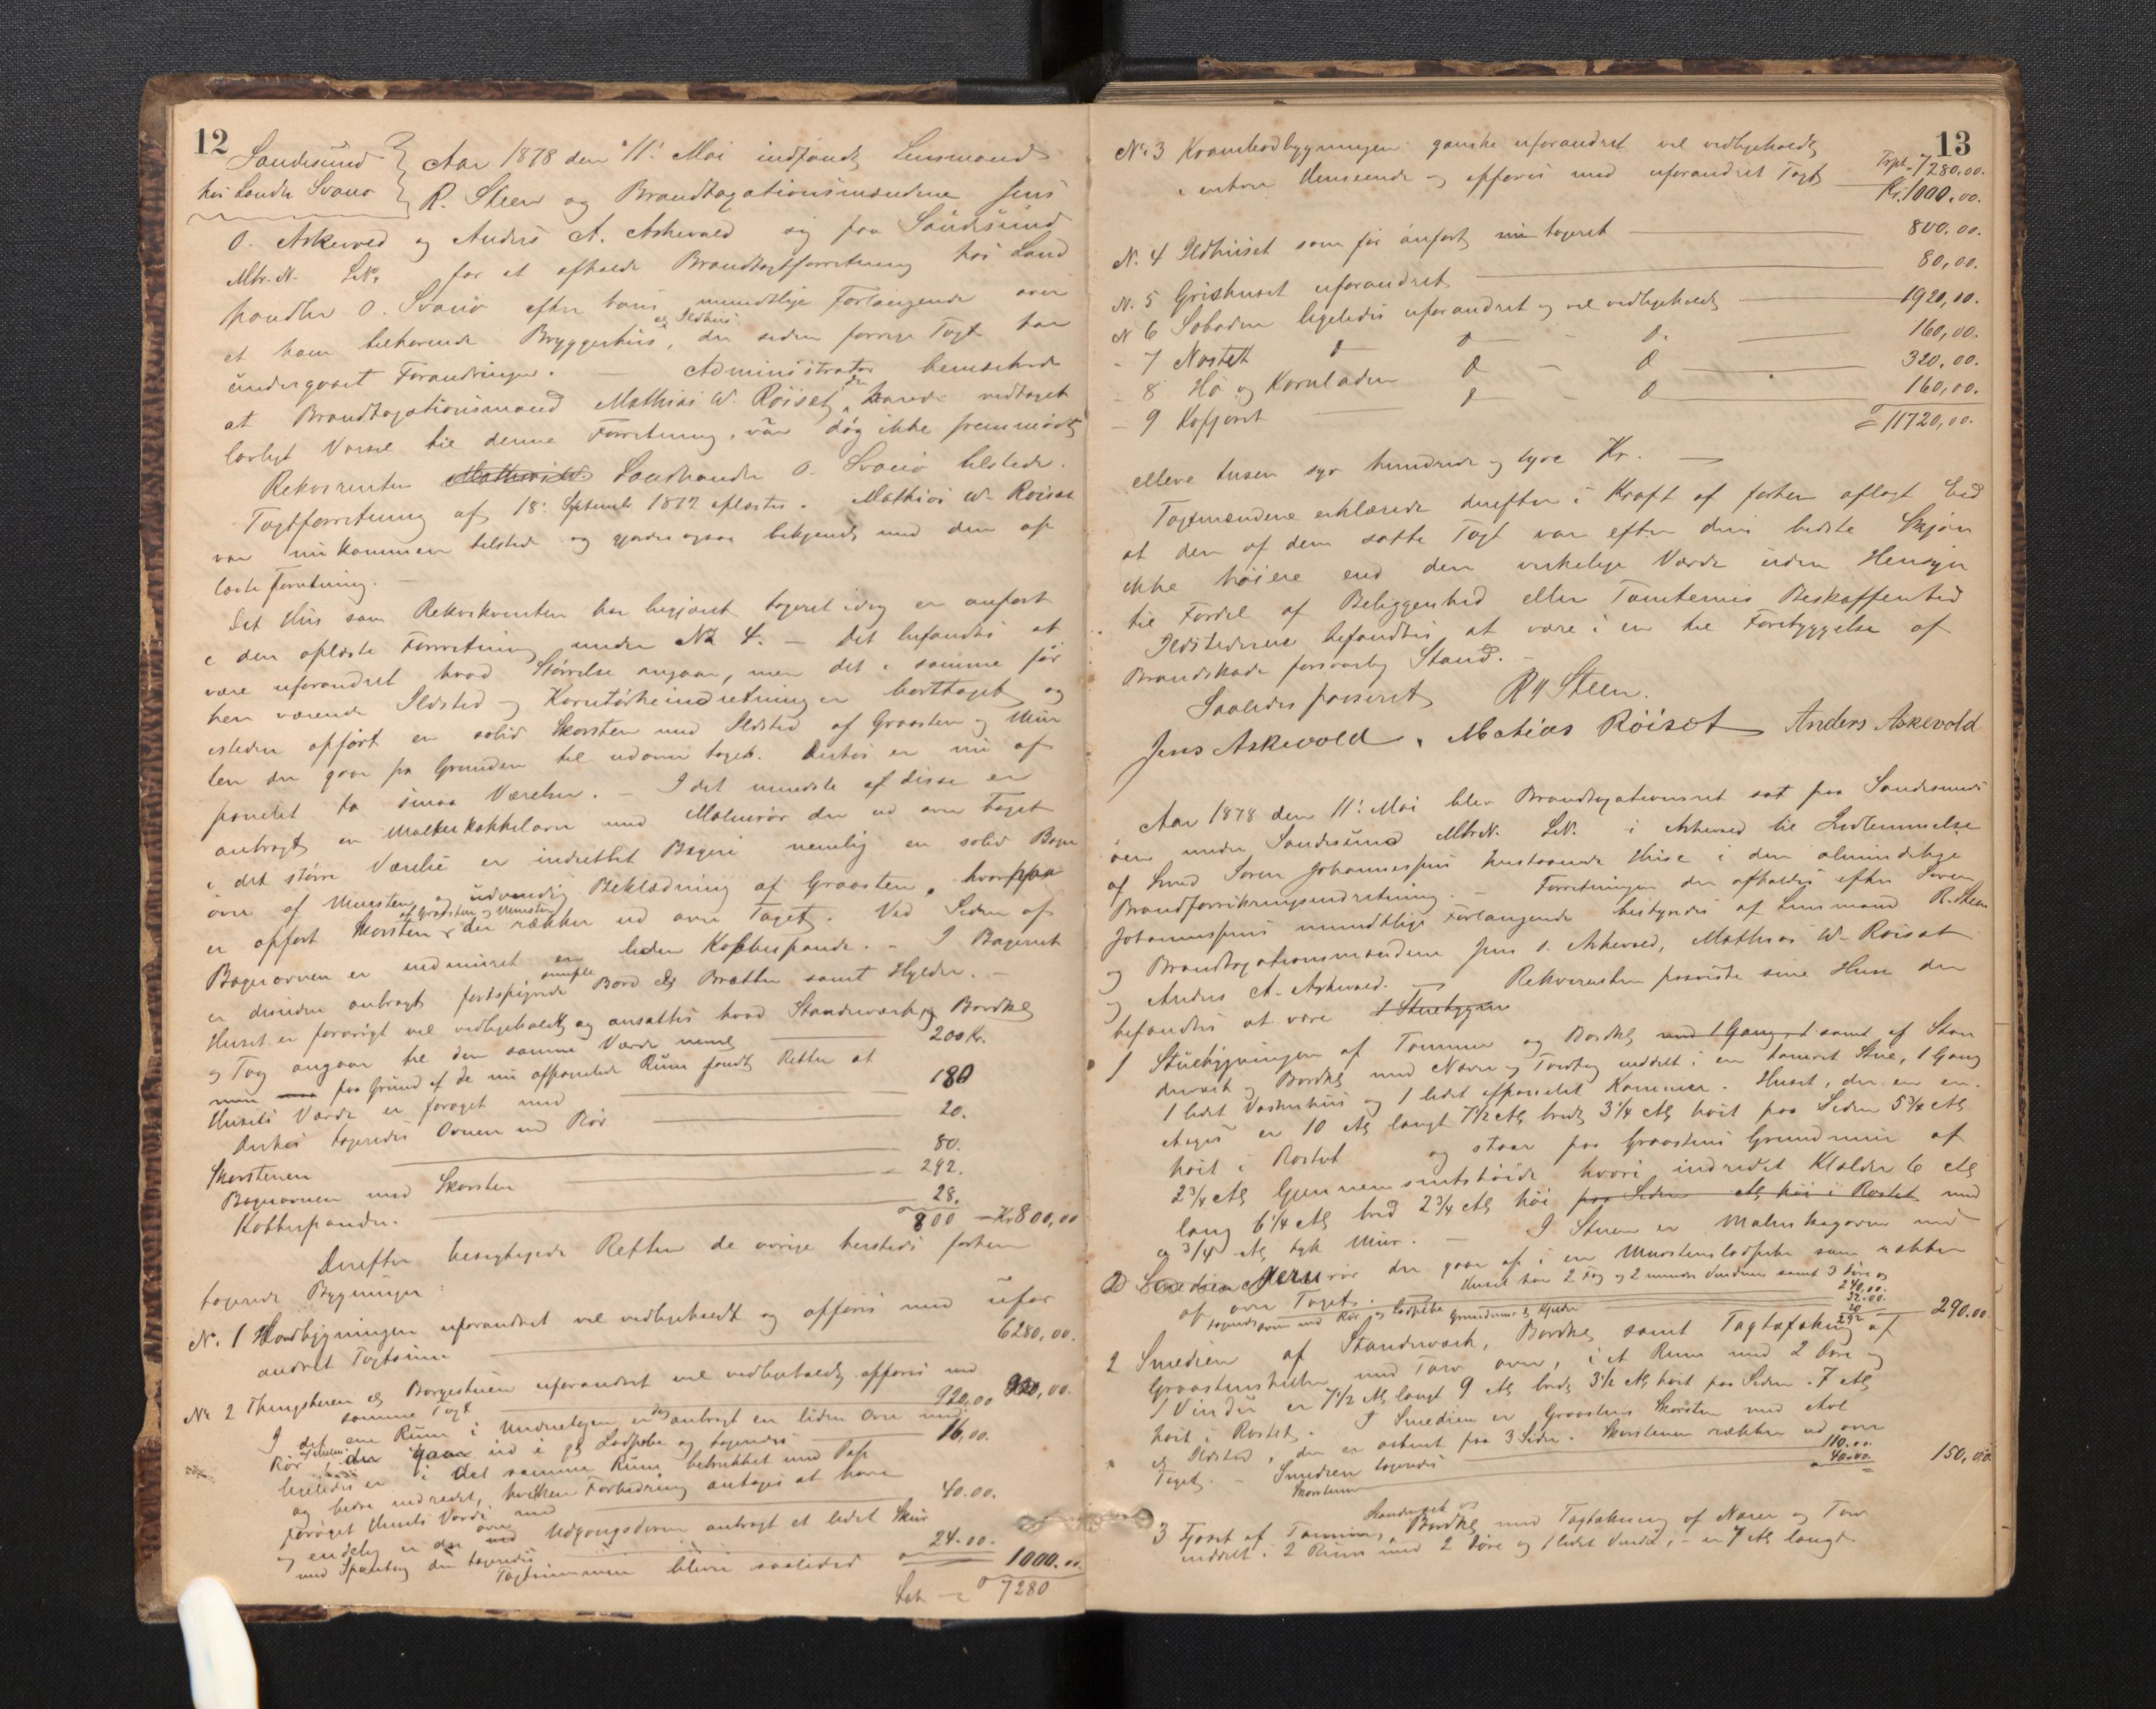 12
Sandesund
hos Landh. Svanø
Aar 1878 den 11' Mai indfandt Lensmand
R. Steen og Brandtaxationsmændene Jens
O. Askevold og Anders A. Askevold sig paa Sandesund
Mtr. N. L.N. for at afholde Brandtaxtforretning hos Land
handler O. Svanø efter hans mundtlige Forlangende over
et ham tilhørende Bryggerhus, og Ildhus der siden forrige Taxt har
undergaaet Forandringer. — Administrator bemærkede
at Brandtaxationsmand Mathias W. Röiset, der havde vedtaget
lovligt Varsel til denne Forretning, var dog ikke fremmødt
Rekvirenten Landhandler O. Svanø tilstede.
Taxtforretning af 18' September 1872 oplæstes. Mathias W. Röiset
var nu kommen tilstede og gjordes ogsaa bekjendt med den op
læste Forretning. —
Det Hus som Rekvirenten har begjært taxeret idag er anført
i den oplæste Forretning under No 4. — Det befandtes at
være uforandret hvad Størrelse angaar, men det i samme før
hen værende Ildsted og Korntørkeindretning er borttaget og
istedn opført en solid Skorsten med Ildsted af Graasten og Mur
sten der gaar fra Grunden til udover taget. Desuden er nu af
panelet to smaa Værelser. — I det mindste af disse er
anbragt en Kakkelovn med Malmrör der ud over Taget
i det større Værelse er indrettet Bageri nemlig en solid Bager
ovn af Mursten og udvendig Beklædning af Graasten, hvorpaa
er opført Skorsten af Graasten og Mursten der rækker ud over Taget. Ved Siden af
Bagerovnen er indmuret en liden Kobberpande. — I Bageriet
er desuden anbragt fortspigrede simple Bord og Brætter samt Hylder. —
Huset er forøvrigt vel vedligeholdt og ansattes hvad Standerværk og Bordkl
og Tag angaar til den samme Værdi neml 200 Kr.
men paa Grund af de nu afpanelede Rum fandt Retten at
Husets Værdi er forøget med 180
Derhos taxeredes Ovnen med Rör 20.
Skorstenen 80.
Bagerovnen med Skorsten 292.
Kobberpanden. 28.
800 — Kr 800,00
Derefter besigtigede Retten de øvrige hersteds forhen
taxerede Bygninger:
No. 1 Hovedbygningen uforandret vel vedligeholdt og opføres med ufor
andret Taxtsum 6280,00.
No 2 Thingstuen og Borgestuen uforandret vel vedligeholdt opføres med
samme Taxt 920,00
I det ene Rum i Underetagen er anbragt en liden Ovn med
Rör der gaar ind i Ladpibe og taxeredes 16,00.
ligeledes er i det samme Rum betrukket med Pap
og bedre indredet, hvilken Forbedring antages at have
forøget Husets Værdi med 40.00.
og endelig er der over Udgangsdøren anbragt et lidet Skur
med Spontag der taxeredes 24.00.
Taxtsummen bliver saaledes 1000.00
Lat 7280
13
No 3 Krambodbygningen ganske uforandret vel vedligeholdt
i enhver Henseende og opføres med uforandret Taxt Trpt. 7280,00.
Kr. 1000.00.
N. 4 Ildhuset som før anført nu taxeret 800.00.
N. 5 Grishuset uforandret 80,00.
N 6 Søboden ligeledes uforandret og vel vedligeholdt 1920,00.
- 7 Nøstet 160,00.
- 8 Hø og Kornladen 320.00.
- 9 Kofjøset 160,00.
11720,00.
elleve tusen syv hundrede og tyve Kr. —
Taxtmændene erklærede derefter i Kraft af forhen aflagt Eed
at den af dem satte Taxt var efter deres bedste Skjøn
ikke høiere end den virkelige Værdi uden Hensyn
til Fordel af Beliggenhed eller Tomternes Beskaffenhed
Ildstederne befandtes at være i en til Forebyggelse af
Brandskade forsvarlig Stand. —
Saaledes passeret R Steen.
Jens Askevold. Matias Röiset Anders Askevold
Aar 1878 den 11' Mai blev Brandtaxationsret sat paa Sandesunds
øen under Sandesund Mtr.N. L.N. i Askevold til Indlemmelse
af Smed Søren Johannessens iværende Huse i den almindelige
Brandforsikringsindretning. — Forretningen der afholdes efter Søren
Johannessens mundtlige Forlangende bestyredes af Lensmand R. Steen
og Brandtaxationsmændene Jens O. Askevold, Mathias W. Röiset
og Anders A. Askevold. — Rekvirenten paaviste sine Huse der
befandtes at være 1 Stuebygn
1 Stuebygningen af Tømmer og Bordkl med 1 Gang samt af Stan
derværk og Bordkl med Næver og Torvtag inddelt i en tømret Stue, 1 Gang
1 lidet Vaskerhus og 1 lidet afpanelet Kammer. Huset, der er en
etages er 10 Al langt 7 1/2 Al bredt 3 1/4 Al høit paa Siden 5 3/4 Al
høit i Røstet og staar paa Graastens Grundmur af
2 3/4 Al Gjennemsnitshøide hvori indredet Kjælder 6 Al
lang 6 1/4 Al bred 2 3/4 Al høi paa Siden Al høi i Røstet med
a 3/4 Al tyk Mur. — I Stuen er Malmkagovn med
2 Smedien Jernrör der gaar op i en Murstensladpibe som rækker
op over Taget. Huset har 2 Fag og 2 mindre Vinduer samt 3 Döre og
taxeredes 240.00.
Ovn med Rör og Ladpibe Grundmur og Kjælder 32.00.
20
292 290.00.
2 Smedien af Standerværk, Bordkl samt Tagtækning af
Graastensheller med Torv over, i et Rum med 2 Döre og
1 Vindu er 7 1/2 Al langt 9 Al bredt 3 1/2 Al høit paa Siden. 7 Al
høit i Røstet. I Smedien er Graastens Skorsten med Avl
og Ildsted, der er aabent paa 3 Sider. Skorstenen rækker ud over
Taget. — Smedien taxeredes 110.00
Skorstenen 40.00. 150,00
3 Fjøset af Tømmer, Standerværk og Bordkl med Tagtækning af Næver og Torv
inddelt i 2 Rum med 2 Döre og 1 lidet Vindu, — er 7 Al langt